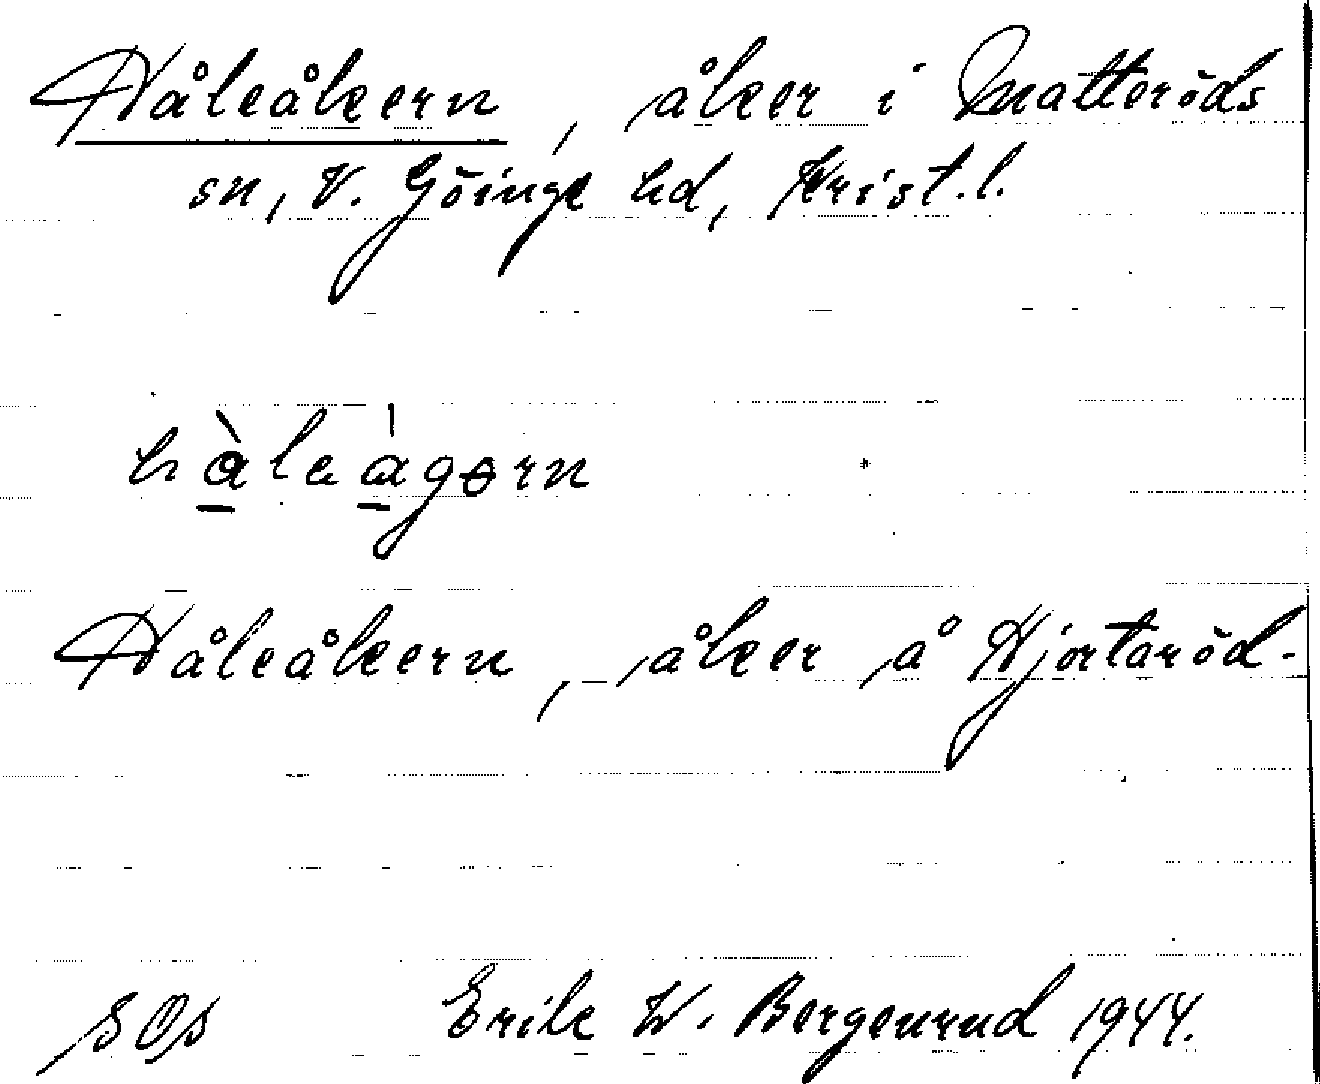 Håleåkern, åker i Matteröds
sn, V. Göinge hd, Krist.l.
hàleàgərn
Håleåkern, åker å Hjortaröd-
SOs Erik W. Bergenrud 1944.